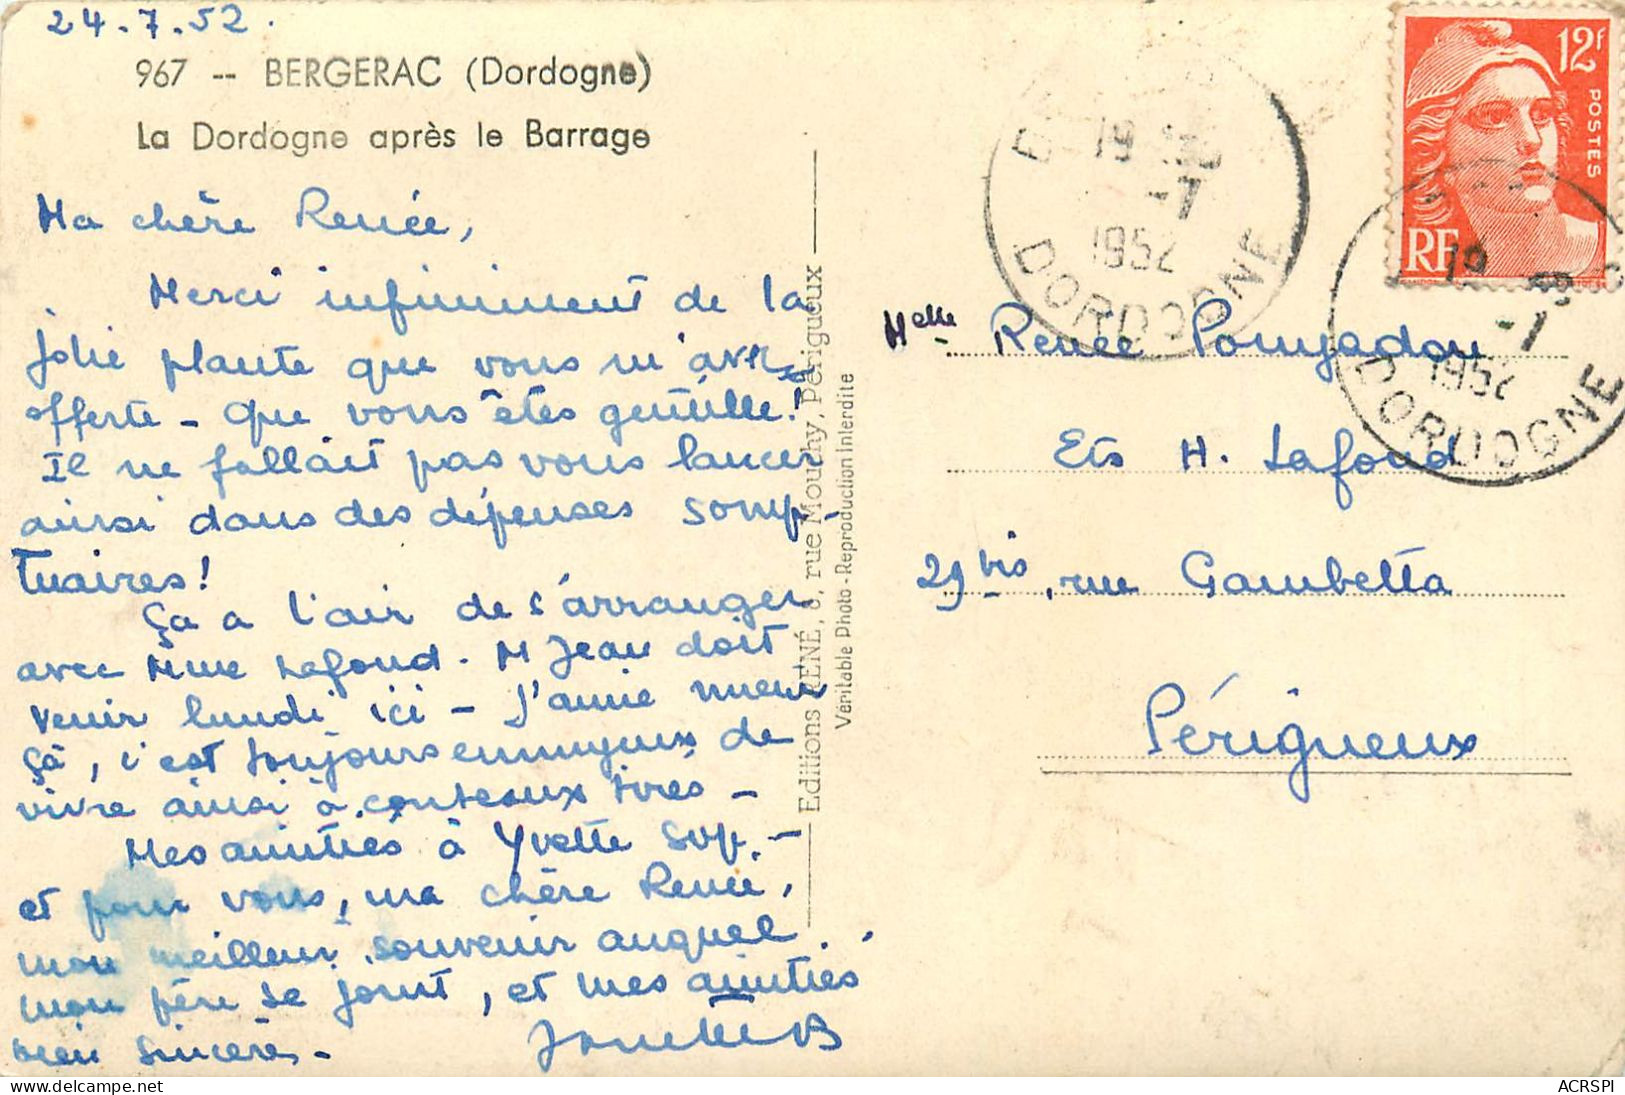 24.7.52.
967 -- BERGERAC (Dordogne)
La Dordogne après le Barrage
Ma chère Renée,
Merci infiniment de la
jolie plante que vous m'avez
offerte - que vous êtes gentille!
Il ne fallait pas vous lancer
ainsi dans des dépenses somp-
tuaires!
Ça a l'air de s'arranger
avec Mme Lafond. M Jean doit
venir lundi ici - J'aime mieux
ça, c'est toujours ennuyeux de
vivre ainsi à couteaux tirés -
Mes amitiés à Yvette svp. -
et pour vous, ma chère Renée,
mon meilleur souvenir auquel
mon père se joint, et mes amitiés
bien sincères -
Editions RENÉ, 8, rue Mouchy, Périgueux
Véritable Photo - Reproduction Interdite
12f
POSTES
RF
19
-7
1952
DORDOGNE
19
-7
1952
DORDOGNE
Melle Renée Pomyadou
Ets H. Lafond
29 bis, rue Gambetta
Périgueux
ACRSPI